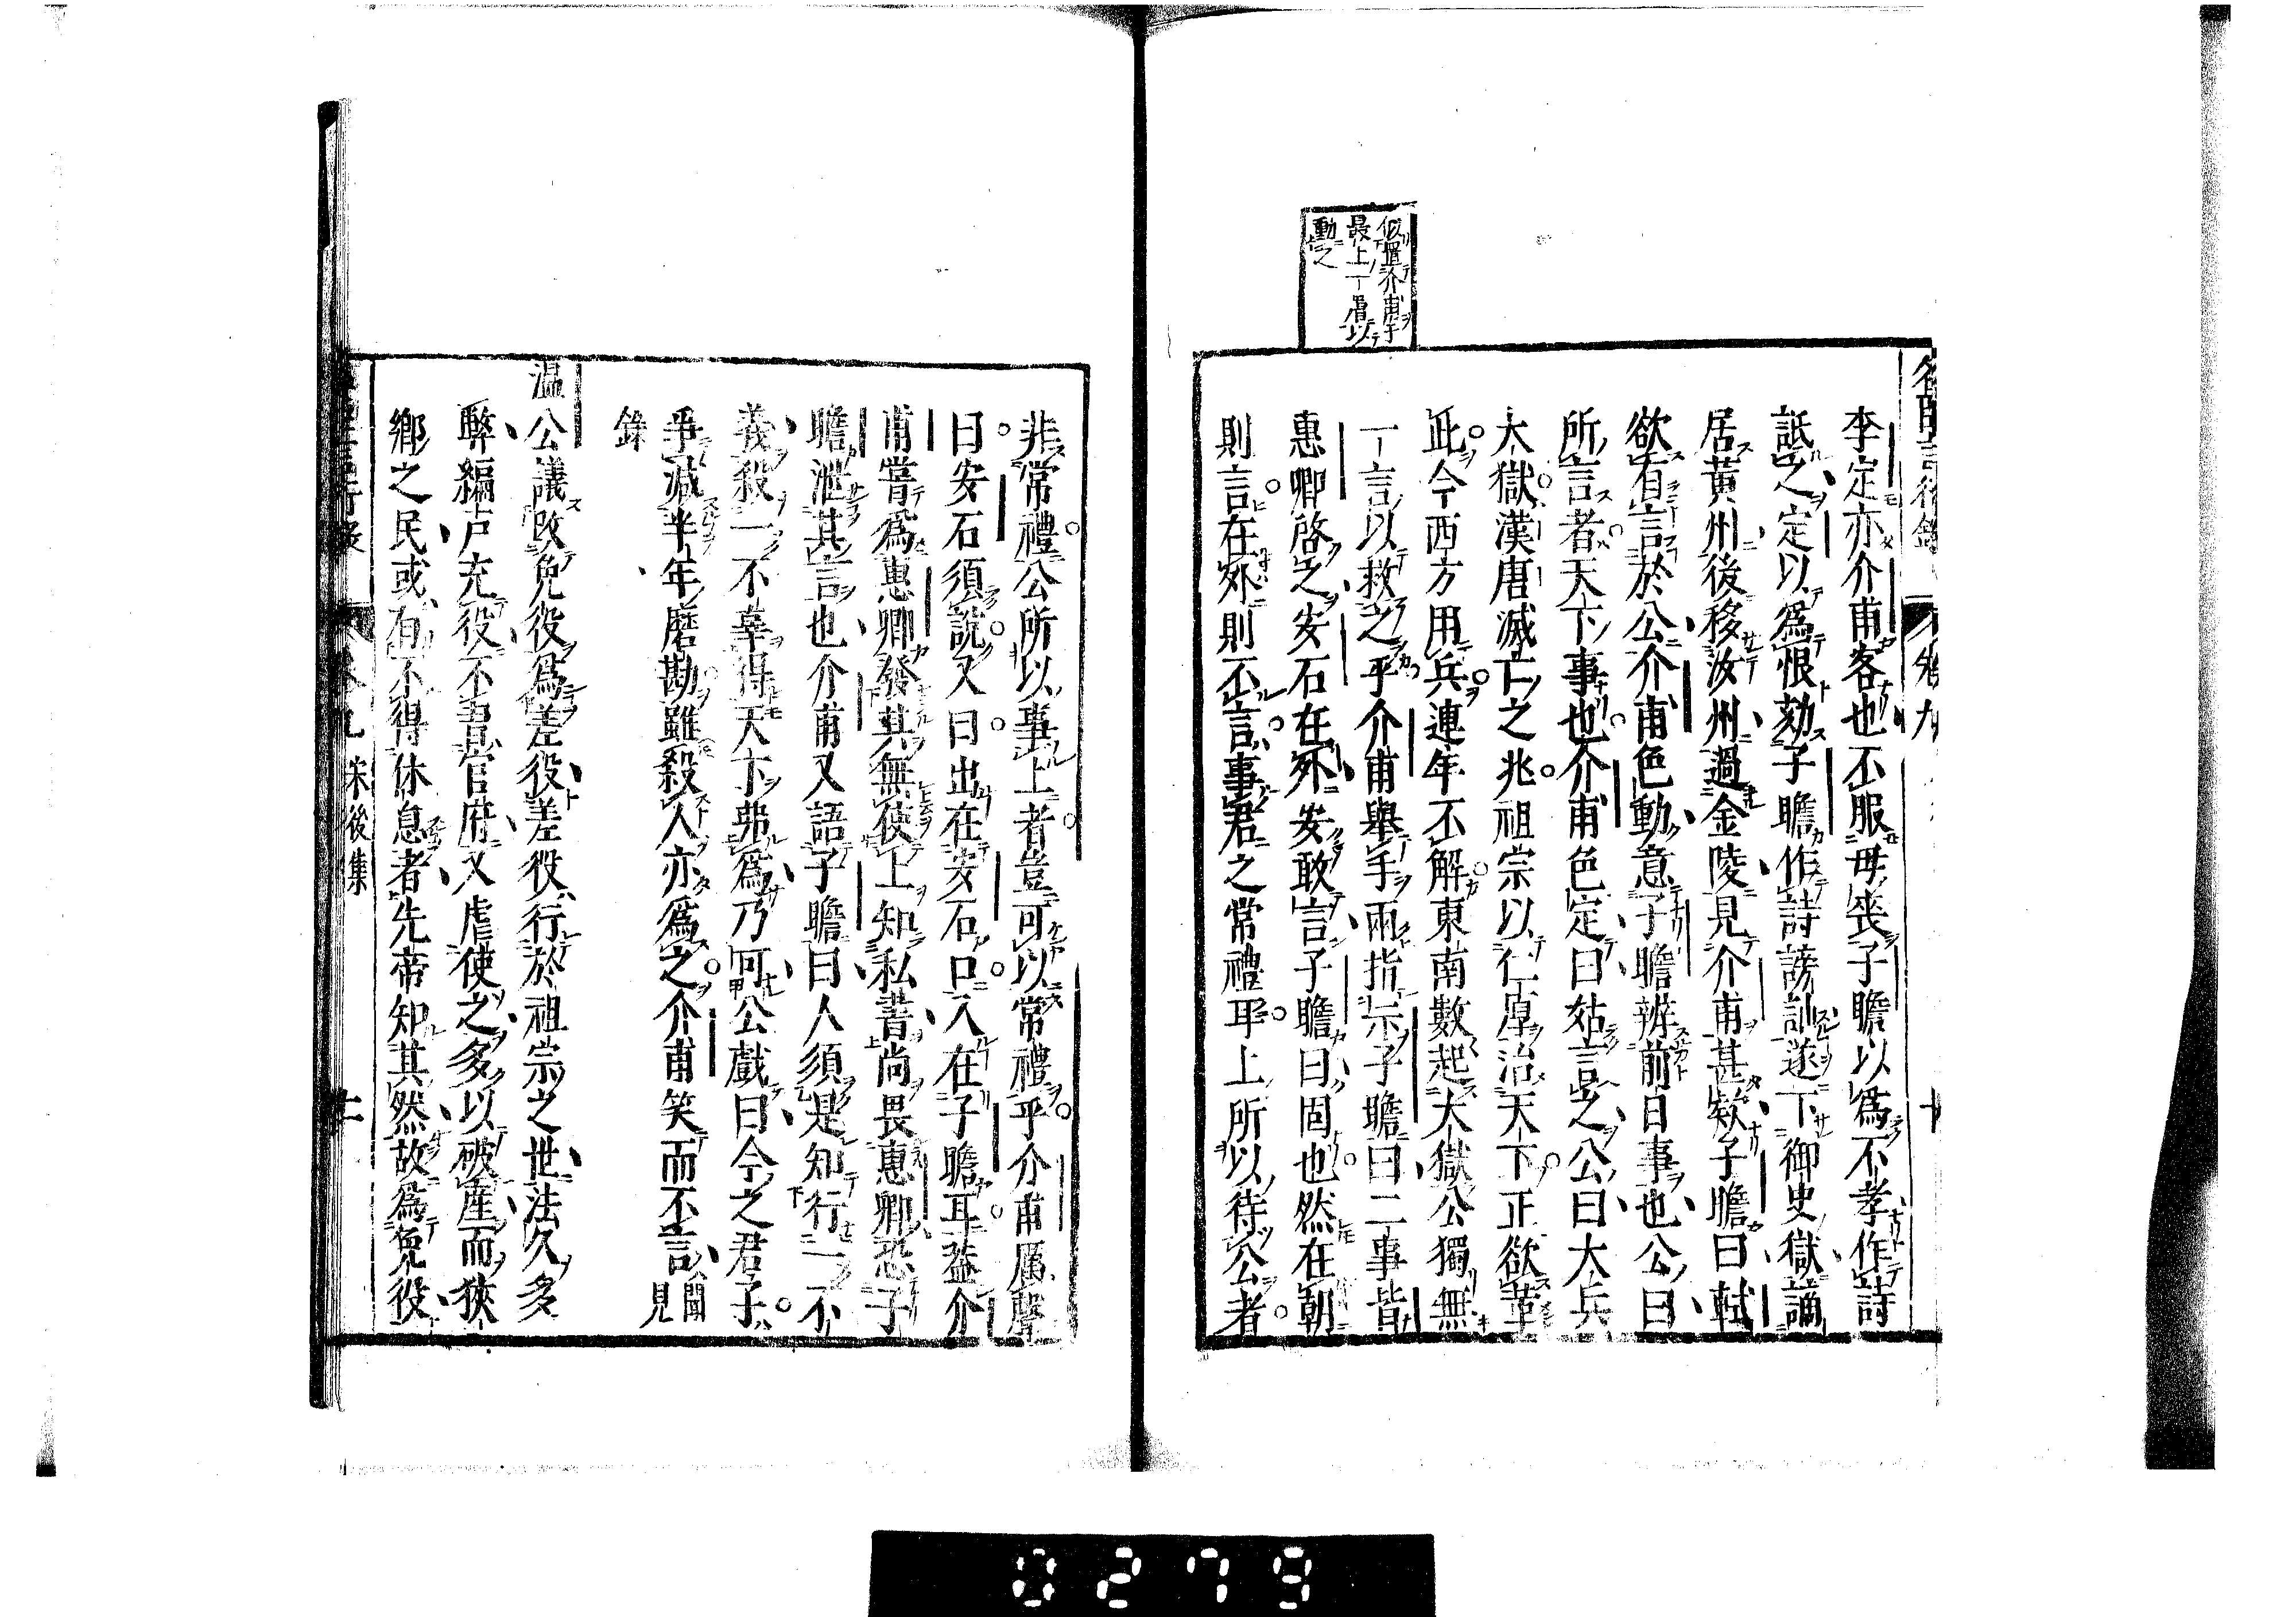 似置介甫于
最上一層以
動之
名臣言行錄 卷九 十
李定亦介甫客也不服母喪子瞻以爲不孝作詩
詆之定以爲恨劾子瞻作詩謗訕遂下御史獄謫
居黃州後移汝州過金陵見介甫甚欵子瞻曰軾
欲有言於公介甫色動意子瞻辨前日事也公曰
所言者天下事也介甫色定曰姑言之公曰大兵
大獄漢唐滅亡之兆祖宗以仁厚治天下正欲革
此今西方用兵連年不解東南數起大獄公獨無
一言以救之乎介甫舉手兩指示子瞻曰二事皆
惠卿啓之安石在外安敢言子瞻曰固也然在朝
則言在外則不言事君之常禮耳上所以待公者
非常禮公所以事上者豈可以常禮乎介甫厲聲
曰安石須說又曰出在安石口入在子瞻耳葢介
甫嘗爲惠卿發其無使上知私書尚畏惠卿恐子
瞻泄其言也介甫又語子瞻曰人須是知行一不
義殺一不辜得天下弗爲乃可公戲曰今之君子
爭減半年磨勘雖殺人亦爲之介甫笑而不言聞見
錄
温公議改免役爲差役差役行於祖宗之世法久多
弊編戶充役不習官府又虐使之多以破產而狹
鄉之民或有不得休息者先帝知其然故爲免役
卷九 宋後集 十一
0279